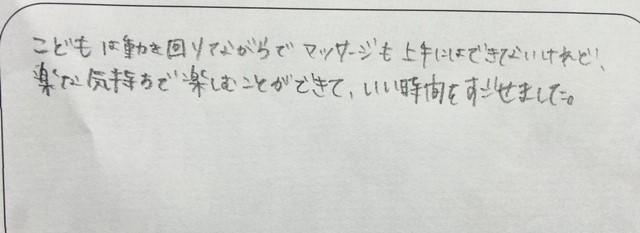 こどもは動き回りながらで マッサージも上手にはできないけれど、
楽な気持ちで楽しむことができて、いい時間をすごせました。